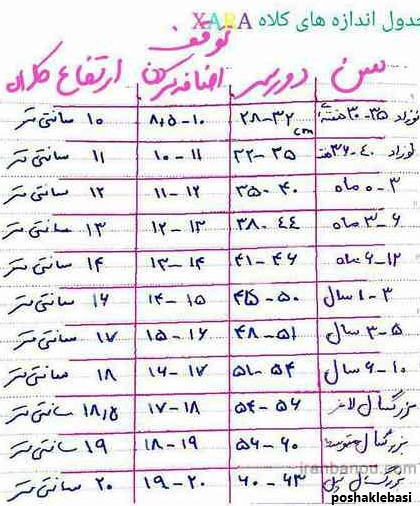 جدول اندازه های کلاه XARA
سن دورسر توقف اضافه کردن ارتفاع کلاه
نوزاد ۳۵-۳۰ هفته ۳۲-۲۸ cm ۱۰-۸,۵ ۱۰ سانتی متر
نوزاد ۴۰-۳۶ هفته ۳۵-۳۲ ۱۱-۱۰ ۱۱ سانتی متر
۳-۰ ماه ۴۰-۳۵ ۱۲-۱۱ ۱۲ سانتی متر
۶-۳ ماه ۴۴-۳۸ ۱۳-۱۲ ۱۳ سانتی متر
۱۲-۶ ماه ۴۶-۴۱ ۱۴-۱۳ ۱۴ سانتی متر
۳-۱ سال ۵۰-۴۵ ۱۵-۱۴ ۱۶ سانتی متر
۵-۳ سال ۵۱-۴۸ ۱۶-۱۵ ۱۷ سانتی متر
۱۰-۶ سال ۵۴-۵۱ ۱۷-۱۶ ۱۸ سانتی متر
بزرگسال لاغر ۵۶-۵۴ ۱۸-۱۷ ۱۸,۵ سانتی متر
بزرگسال متوسط ۶۰-۵۶ ۱۹-۱۸ ۱۹ سانتی متر
بزرگسال ۶۳-۶۰ ۲۰-۱۹ ۲۰ سانتی متر
iranbanou.com
poshaklebasi